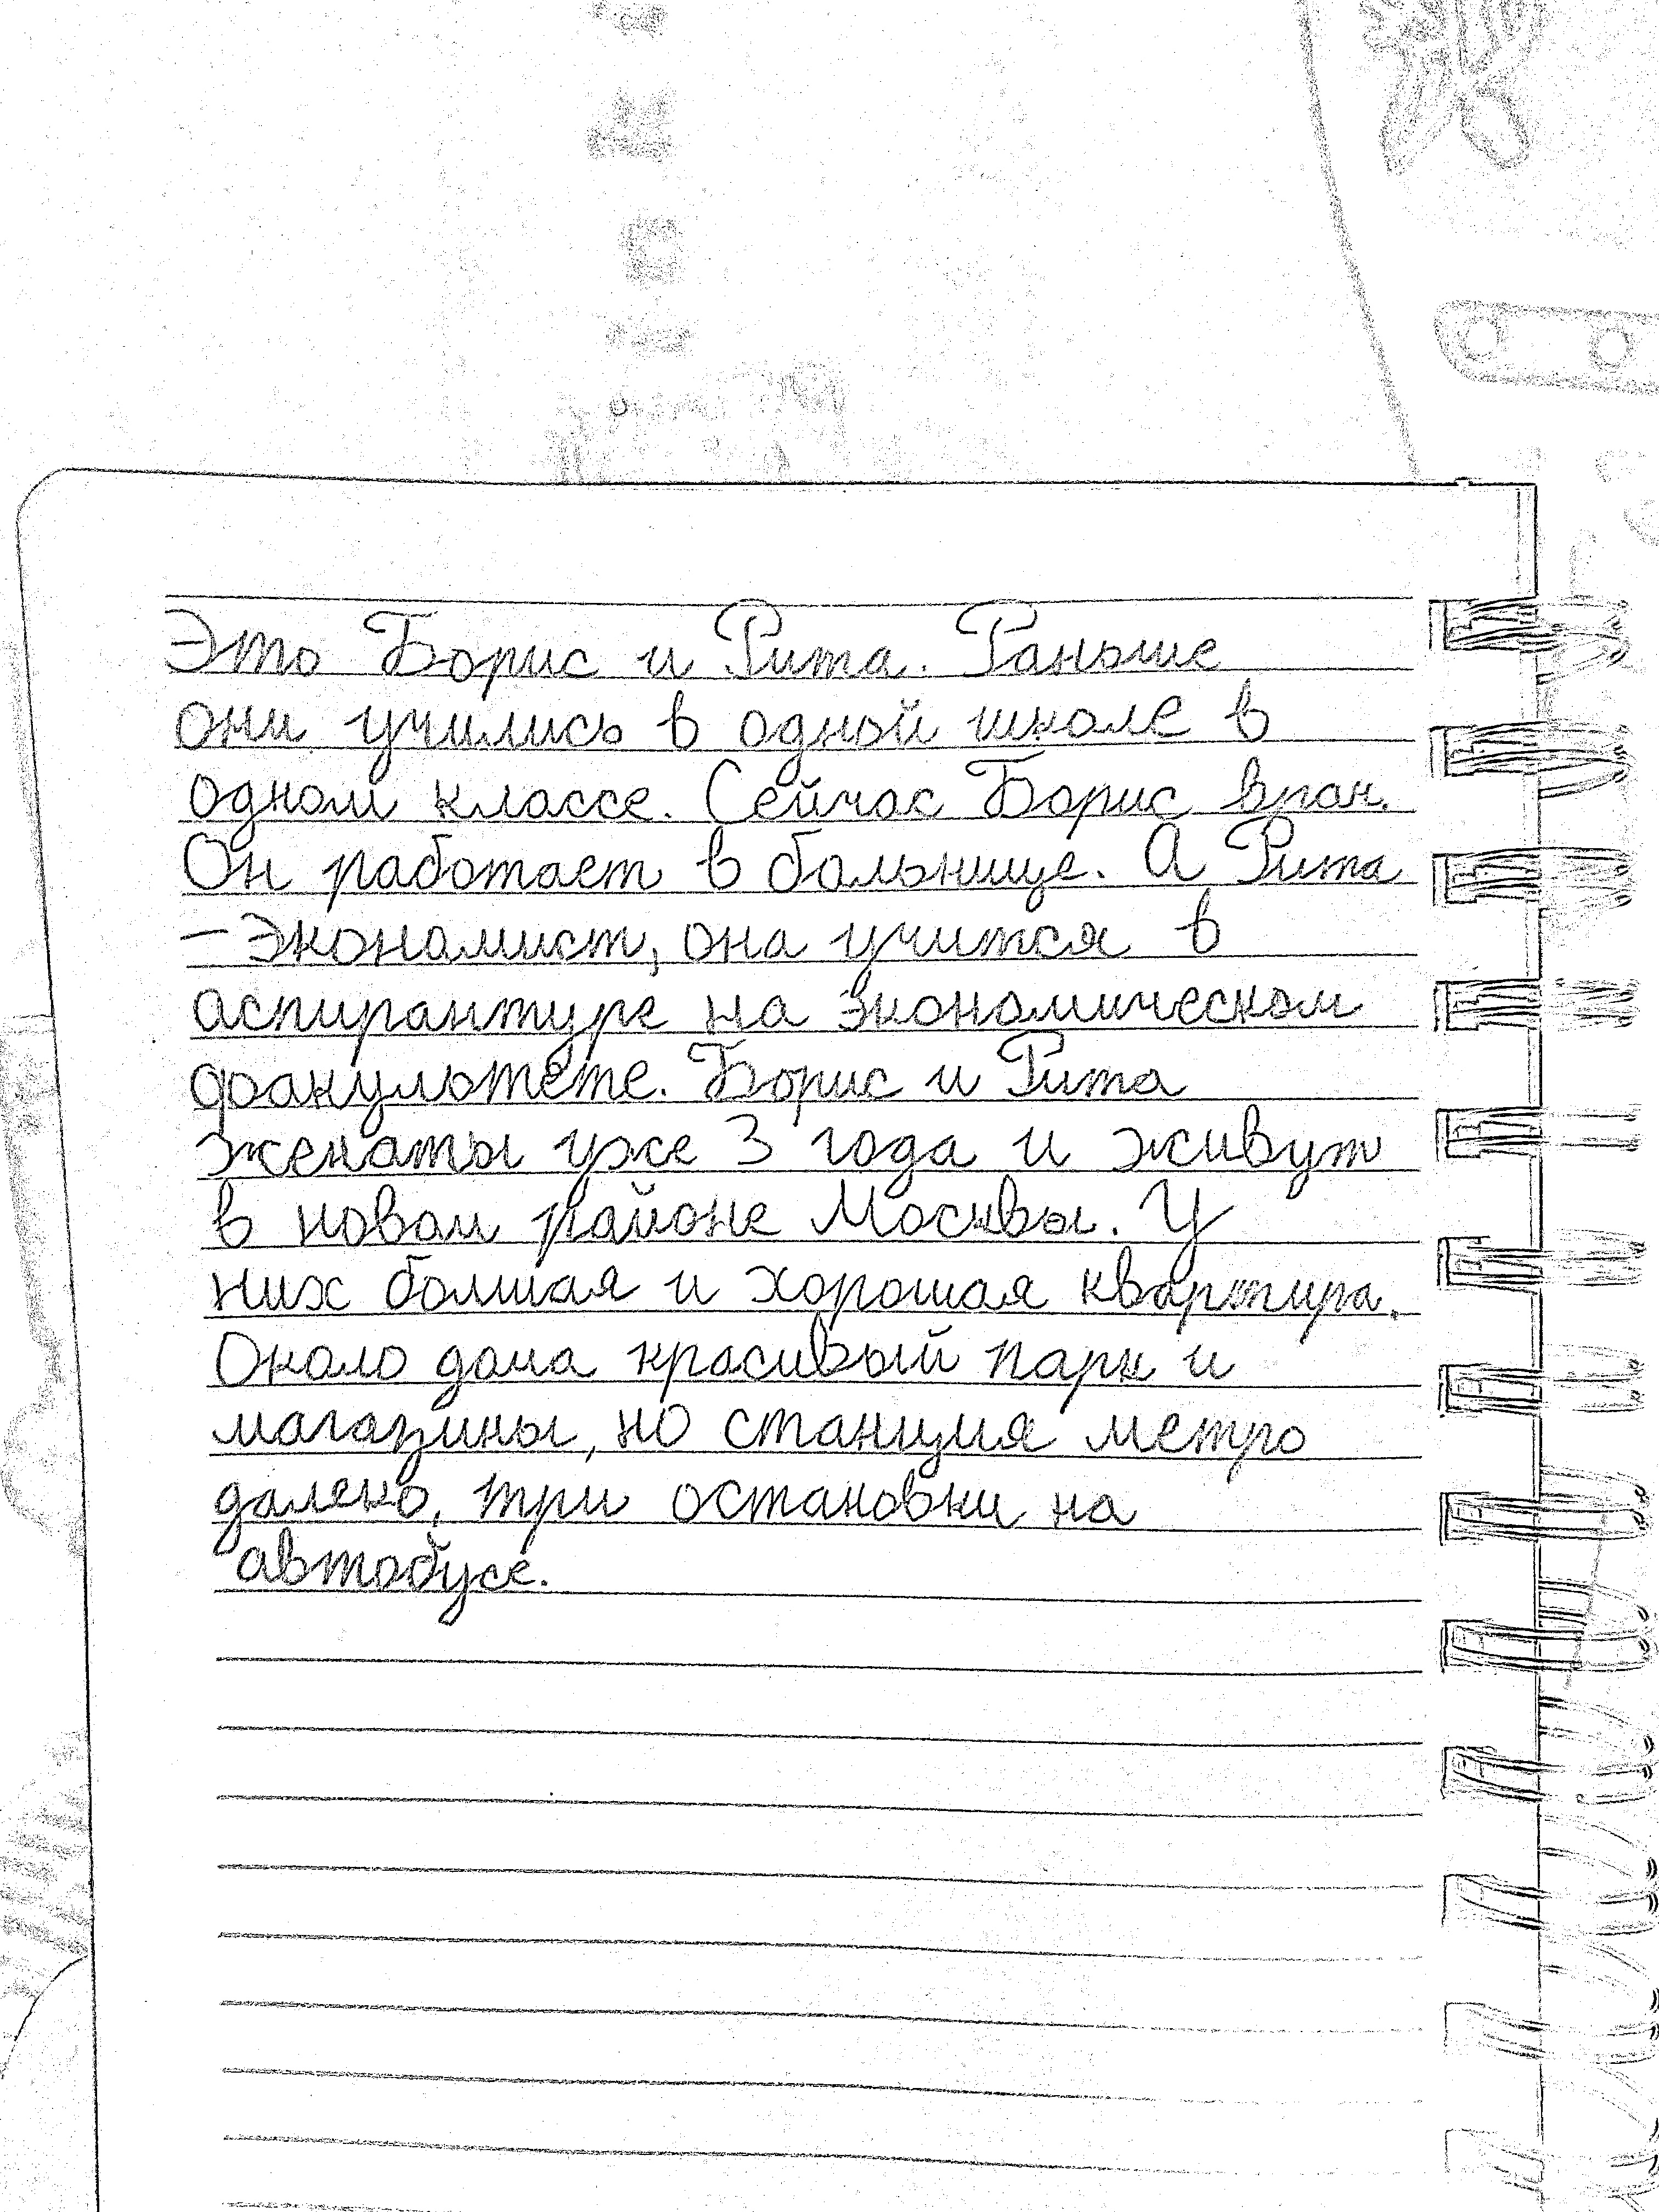 Это Борис и Рита. Раньше
они учились в одной школе в
одном классе. Сейчас Борис врач.
Он работает в больнице. А Рита
– экономист, она учится в
аспирантуре на экономическом
факультете. Борис и Рита
женаты уже 3 года и живут
в новом районе Москвы. У
них болшая и хорошая квартира.
Около дома красивый парк и
магазины, но станция метро
далеко, три остановки на
автобусе.